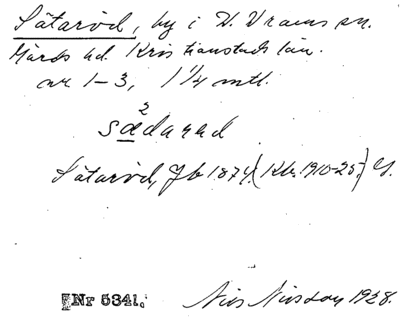 Sätaröd, by i V. Vrams sn.
Gärds hd. Kristianstads län.
nr 1–3, 1 1/4 mtl.
2
sædarad
Sätaröd, Jb 1874. (Kb. 1910-25.) G.
Nr 5341. Nils Nilsson 1928.